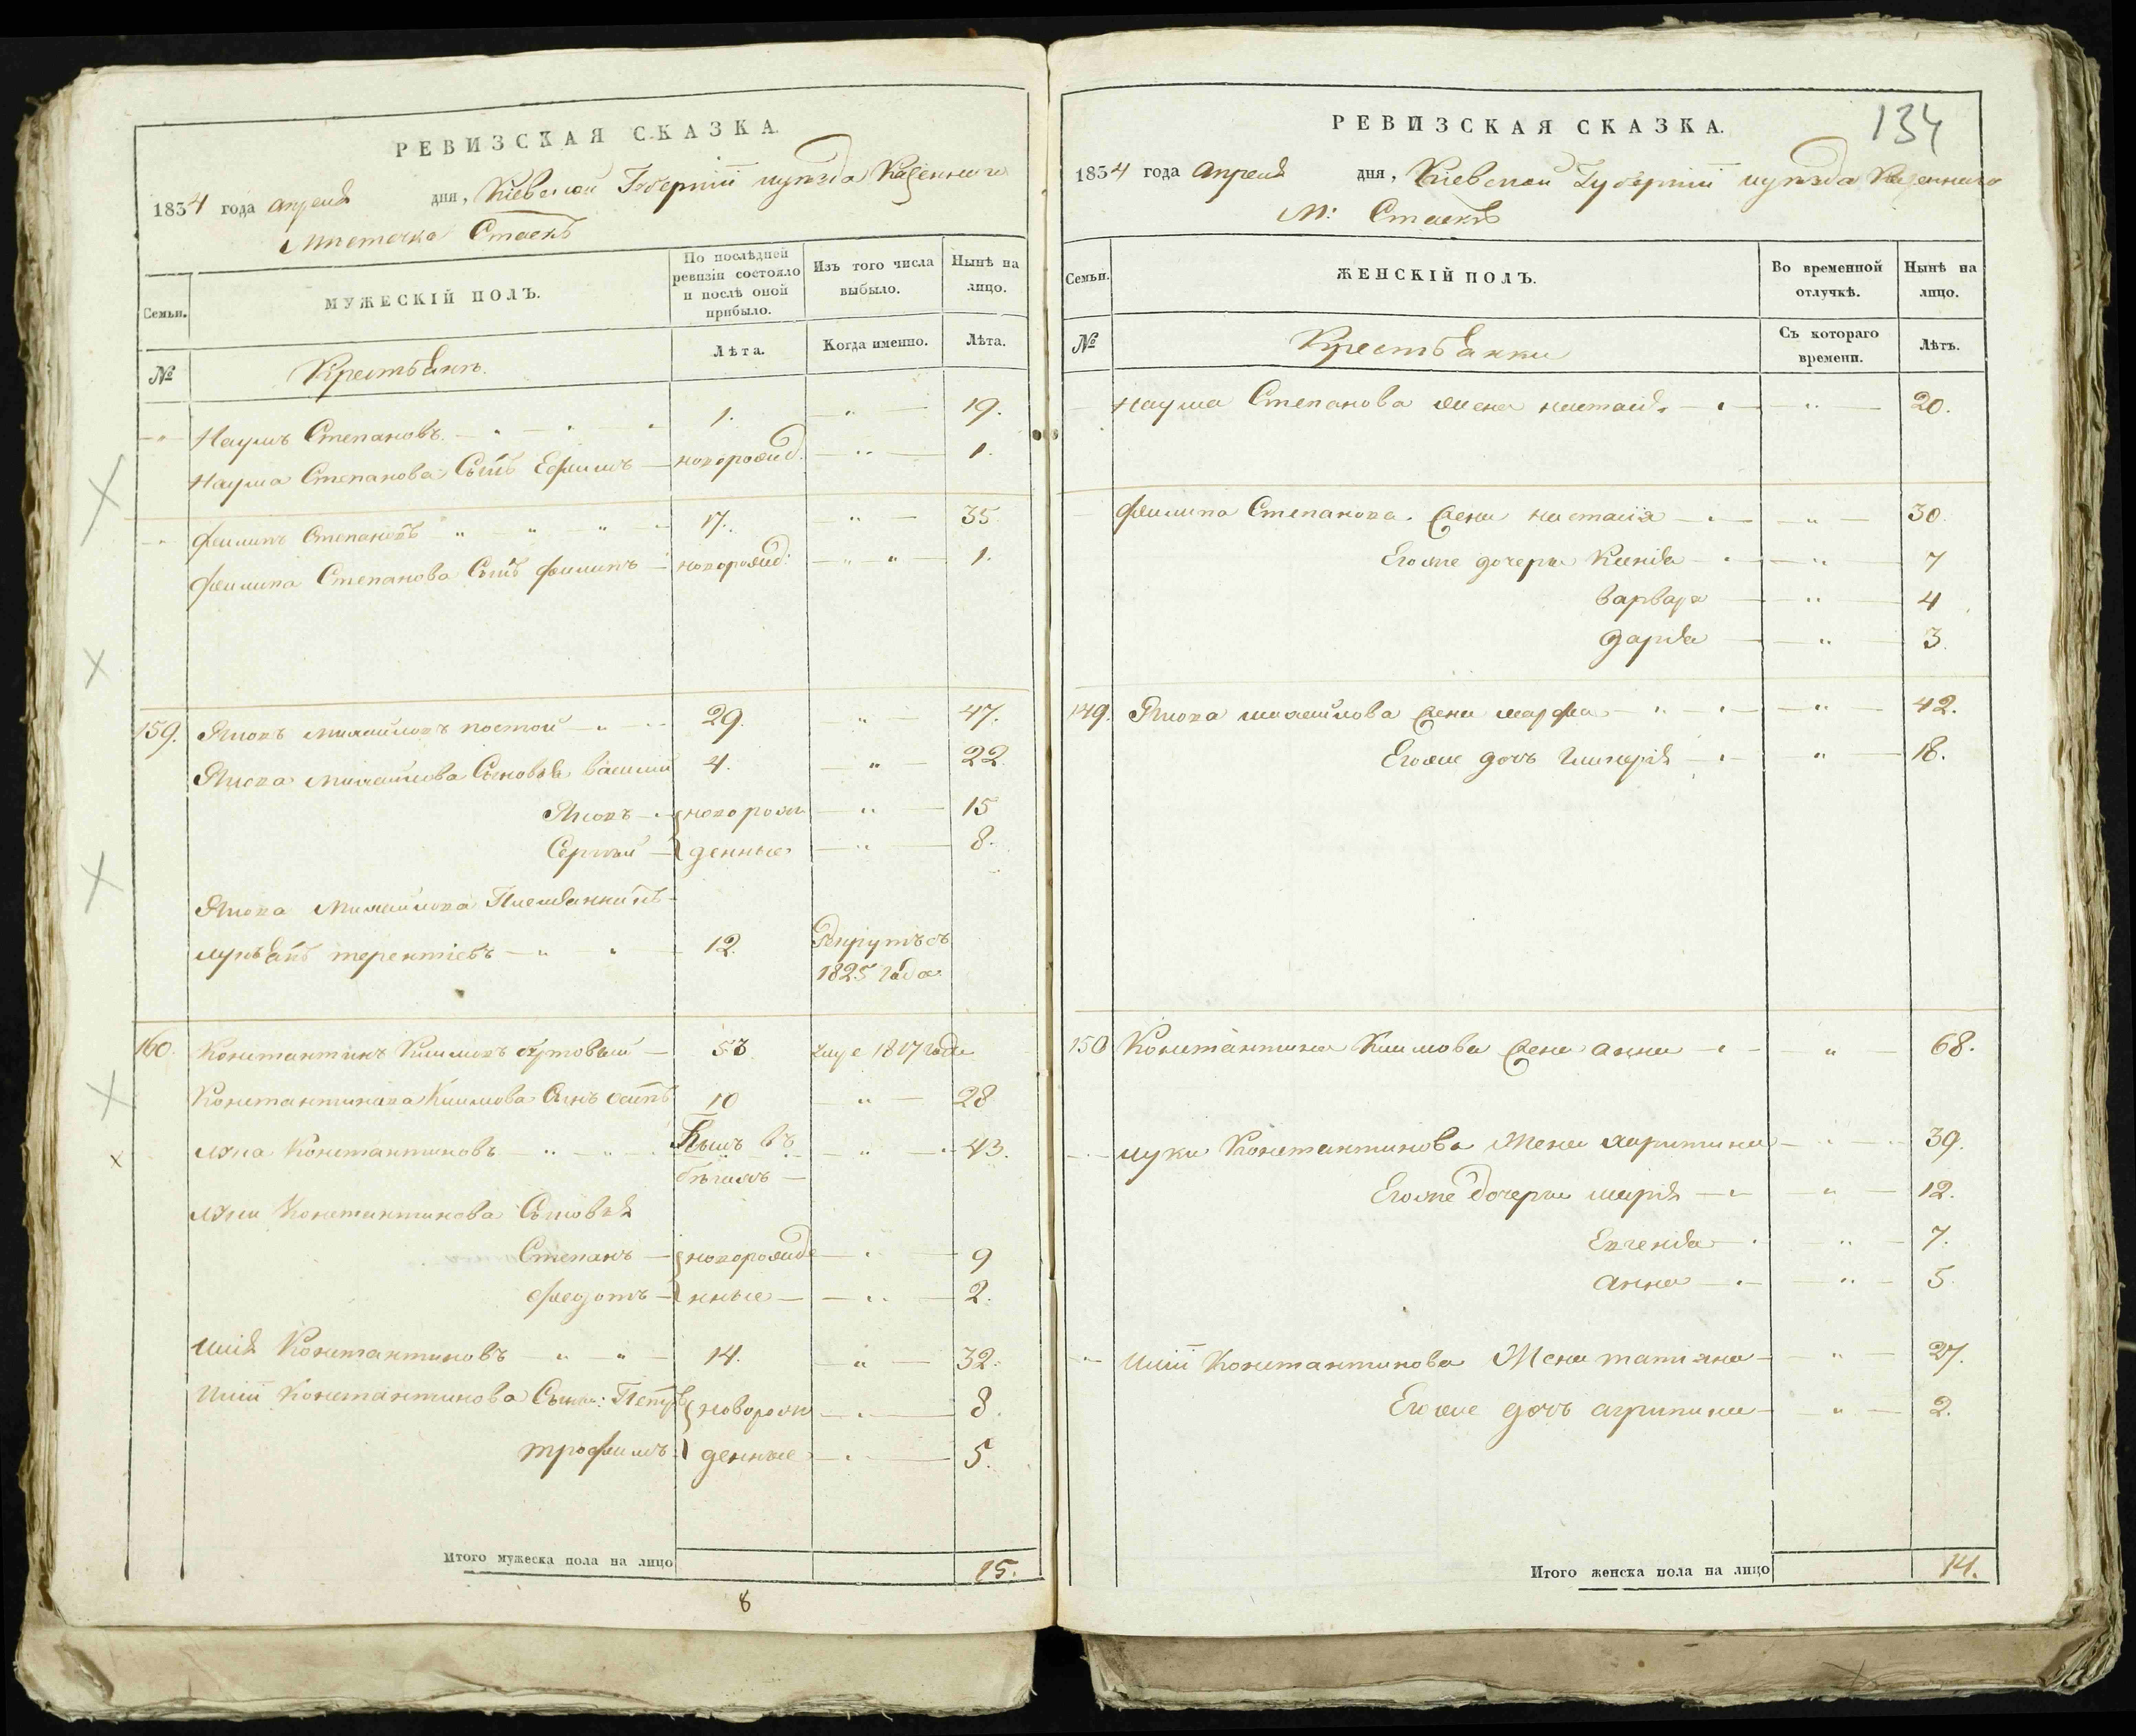 РЕВИЗСКАЯ СКАЗКА.
1834 года апреля дня, Кіевской Губерніи уѣзда Казеннаго
Мѣстечка Стаекъ
Семьи.
МУЖЕСКІЙ ПОЛЪ.
По послѣдней ревизіи состояло и послѣ оной прибыло.
Изъ того числа выбыло.
Нынѣ на лицо.
№
Крестьянъ.
Лѣта.
Когда именно.
Лѣта.
Наумъ Степановъ 1. 19.
Наума Степанова Сынъ Ефимъ новорожд. 1.
Филипъ Степановъ 17. 35
Филипа Степанова Сынъ Филипъ новорожд: 1.
159. Яковъ Михайловъ 29. 47.
Якова Михайлова Сыновья Василій 4. 22.
Яковъ новорож 15
Сергѣй денные 8.
Якова Михайлова Племянникъ
Лукьянъ Терентіевъ 12. Рекрутъ съ
1825 года
160. Константинъ Климовъ 53 1817 года
Константина Климова Сынъ Осипъ 10 28
Лука Константиновъ Былъ въ 43.
бѣгахъ
Луки Константинова Сыновья
Степанъ новорожде 9
Федотъ нные 2.
Илія Константиновъ 14. 32.
Иліи Константинова Сыны: Петръ новорож 8.
Трофимъ денные 5.
Итого мужеска пола на лицо 15.
8
134
РЕВИЗСКАЯ СКАЗКА.
1834 года Апреля дня, Кіевской Губерніи уѣзда Казеннаго
М: Стаекъ
Семьи.
ЖЕНСКІЙ ПОЛЪ.
Во временной отлучкѣ.
Нынѣ на лицо.
№
Крестьянки
Съ котораго времени.
Лѣтъ.
Наума Степанова жена Настасія 20.
Филипа Степанова жена Настасія 30.
Его же дочери Ксенія 7
Варвара 4
Дарія 3.
149. Якова Михайлова жена Марфа 42.
Его же дочь 18.
150 Константина Климова жена Анна 68.
Луки Константинова Жена Харитина 39.
Его же дочери Марія 12.
Евгенія 7.
Анна 5.
Иліи Константинова Жена Татіяна 27.
Его же дочь Агрипина 2.
Итого женска пола на лицо 14.